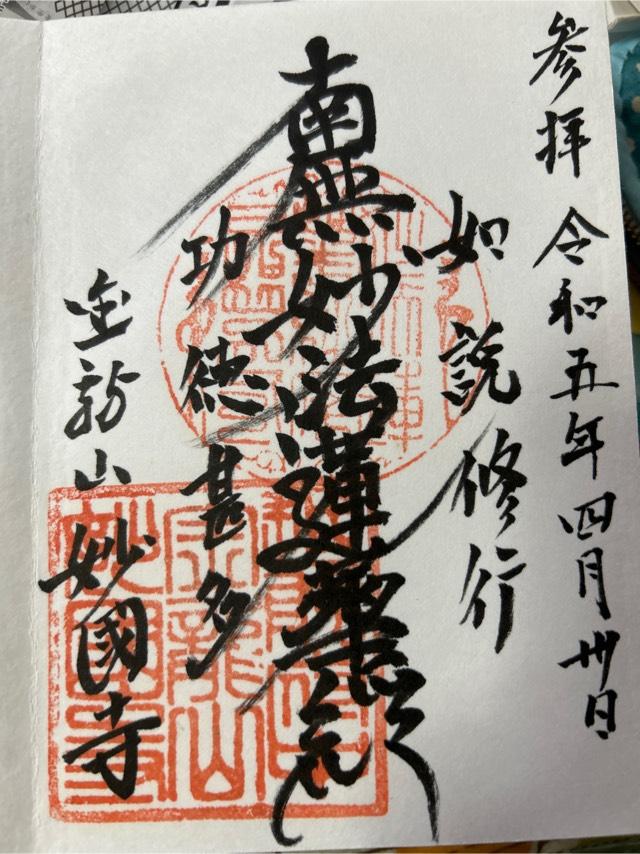 参拝 令和五年四月卅日
如説修行
南無妙法蓮華経
功徳甚多
山 妙國寺